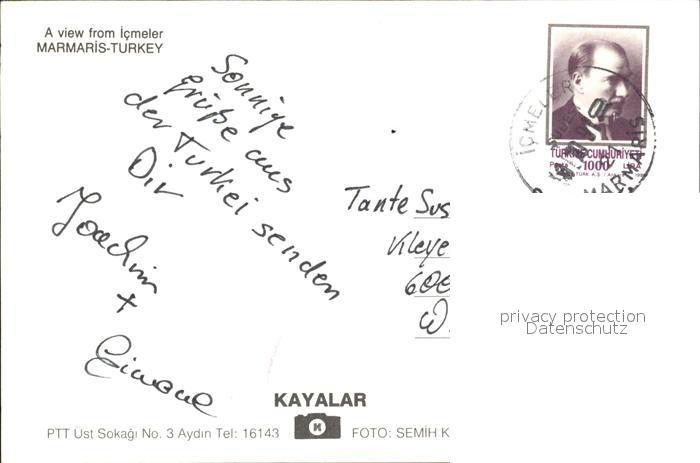 A view from İçmeler
MARMARİS-TURKEY
Sonnige
grüße aus
der Türkei senden
Dir
Joachim
+
Simone
İÇMELER
MARMARİS
TÜRKİYE CUMHURİYETİ
Posta 1000 LİRA
Tante Sus
600
W.
privacy protection
Datenschutz
KAYALAR
PTT Üst Sokağı No. 3 Aydın Tel: 16143
FOTO: SEMİH K